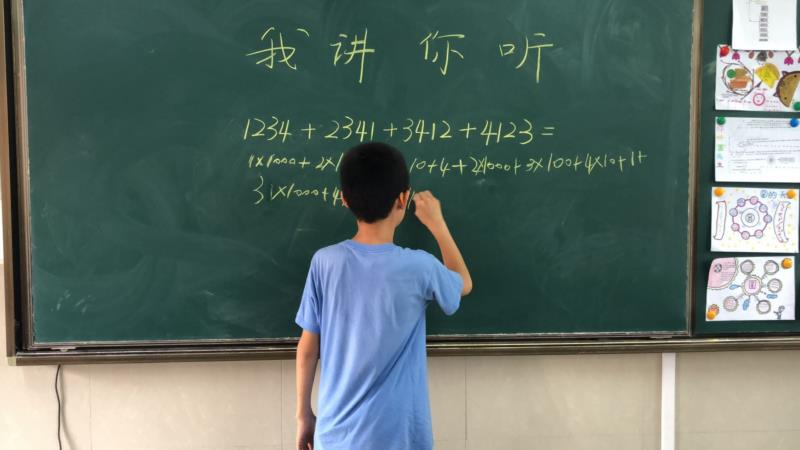 我讲你听
1234+2341+3412+4123=
1×1000+2×1 10+4+2×1000+3×100+4×10+1+
3×1000+4